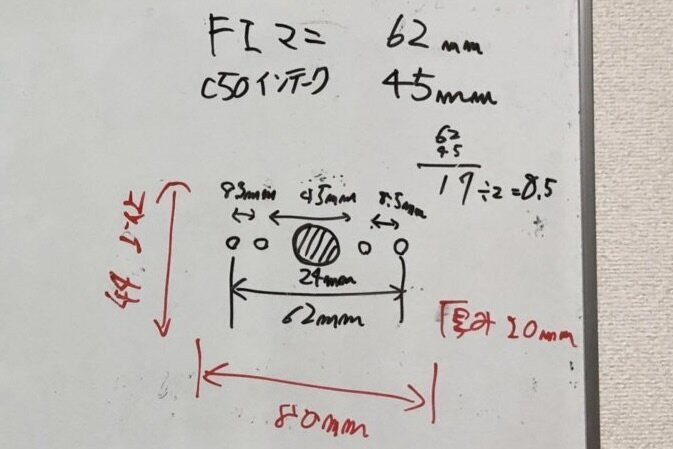 FIマニ 62mm
C50インテーク 45mm
62
45
17÷2=8.5
8.5mm 45mm 8.5mm
24mm
62mm
44
厚み 20mm
80mm